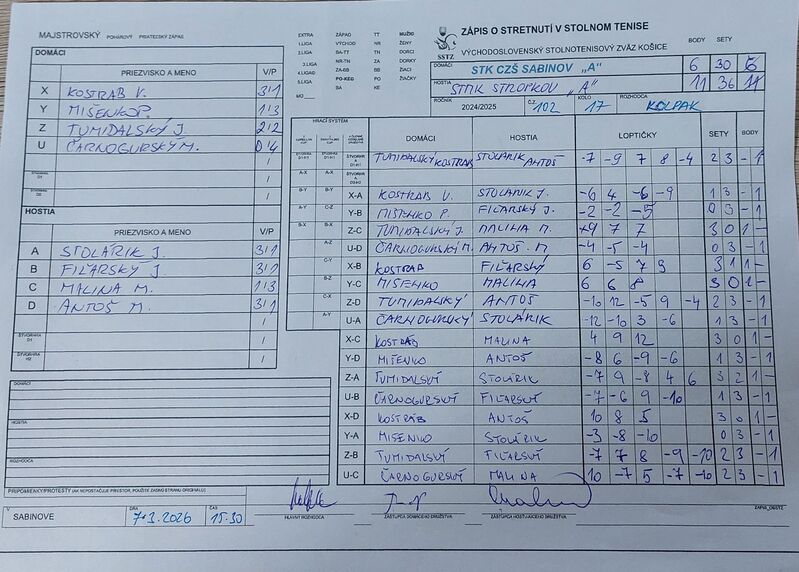 MAJSTROVSKÝ POHÁROVÝ PRIATEĽSKÝ ZÁPAS
EXTRA ZÁPAD TT MUŽI
1.LIGA VÝCHOD NR ŽENY
2.LIGA BA-TT TN DORCI
3.LIGA NR-TN ZA DORKY
4.LIGA ZA-BB BB ŽIACI
5.LIGA PO-KEG PO ŽIAČKY
BA KE
MO
SSTZ
ZÁPIS O STRETNUTÍ V STOLNOM TENISE
VÝCHODOSLOVENSKÝ STOLNOTENISOVÝ ZVÄZ KOŠICE
BODY SETY
DOMÁCI STK CZŠ SABINOV „A" 6 30 6
HOSTIA STMK STROPKOV „A" 11 36 11
ROČNÍK 2024/2025 Č.Z. 102 KOLO 17 ROZHODCA KOLPAK
DOMÁCI
PRIEZVISKO A MENO V/P
X KOSTRAB V. 3/1
Y MIŠENKO P. 1/3
Z TUMIDALSKÝ J. 2/2
U ČARNOGURSKÝ M. 0/4
ŠTVORHRA D1 /
ŠTVORHRA D2 /
HOSTIA
PRIEZVISKO A MENO V/P
A STOLÁRIK J. 3/1
B FIĽARSKÝ J. 3/1
C MALINA M. 1/3
D ANTOŠ M. 3/1
ŠTVORHRA D1 /
ŠTVORHRA H2 /
HRACÍ SYSTÉM
DOMÁCI HOSTIA LOPTIČKY SETY BODY
TUMIDALSKÝ KOSTRAB STOLÁRIK ANTOŠ -7 -9 7 8 -4 2 3 - 1
X-A KOSTRAB V. STOLÁRIK J. -6 4 -6 -9 1 3 - 1
Y-B MIŠENKO P. FIĽARSKÝ J. -2 -2 -5 0 3 - 1
Z-C TUMIDALSKÝ J. MALINA M. 9 7 7 3 0 1 -
U-D ČARNOGURSKÝ M. ANTOŠ M -4 -5 -4 0 3 - 1
X-B KOSTRAB FIĽARSKÝ 6 -5 7 9 3 1 1 -
Y-C MISENKO MALINA 6 6 8 3 0 1 -
Z-D TUMIDALSKÝ ANTOŠ -10 12 -5 9 -4 2 3 - 1
U-A ČARNOGURSKÝ STOLÁRIK -12 -10 3 -6 1 3 - 1
X-C KOSTRÁB MALINA 4 9 12 3 0 1 -
Y-D MIŠENKO ANTOŠ -8 6 -9 -6 1 3 - 1
Z-A TUMIDALSKÝ STOLÁRIK -7 9 -8 4 6 3 2 1 -
U-B ČARNOGURSKÝ FIĽARSKÝ -7 -6 9 -10 1 3 - 1
X-D KOSTRÁB ANTOŠ 10 8 5 3 0 1 -
Y-A MISENKO STOLÁRIK -3 -8 -10 0 3 - 1
Z-B TUMIDALSKÝ FIĽARSKÝ -7 7 8 -9 -10 2 3 - 1
U-C ČARNOGURSKÝ MALINA 10 -7 5 -7 -10 2 3 - 1
DOMÁCI
HOSTIA
ROZHODCA
PRIPOMIENKY/PROTESTY (AK NEPOSTAČUJE PRIESTOR, POUŽITE ZADNÚ STRANU ORIGINÁLU)
V SABINOVE DŇA 7.3.2026 ČAS 15.30
HLAVNÝ ROZHODCA ZÁSTUPCA DOMÁCEHO DRUŽSTVA ZÁSTUPCA HOSŤUJÚCEHO DRUŽSTVA